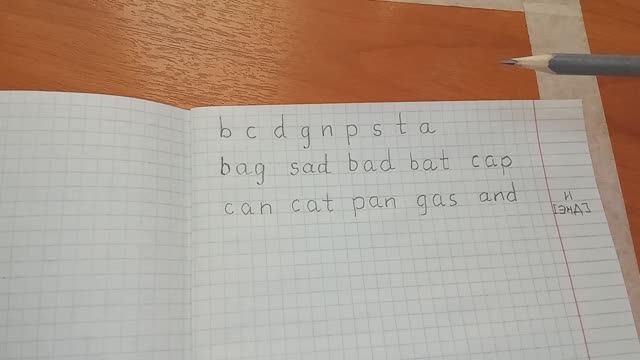 b c d g n p s t a
bag sad bad bat cap
can cat pan gas and
и
[энд]